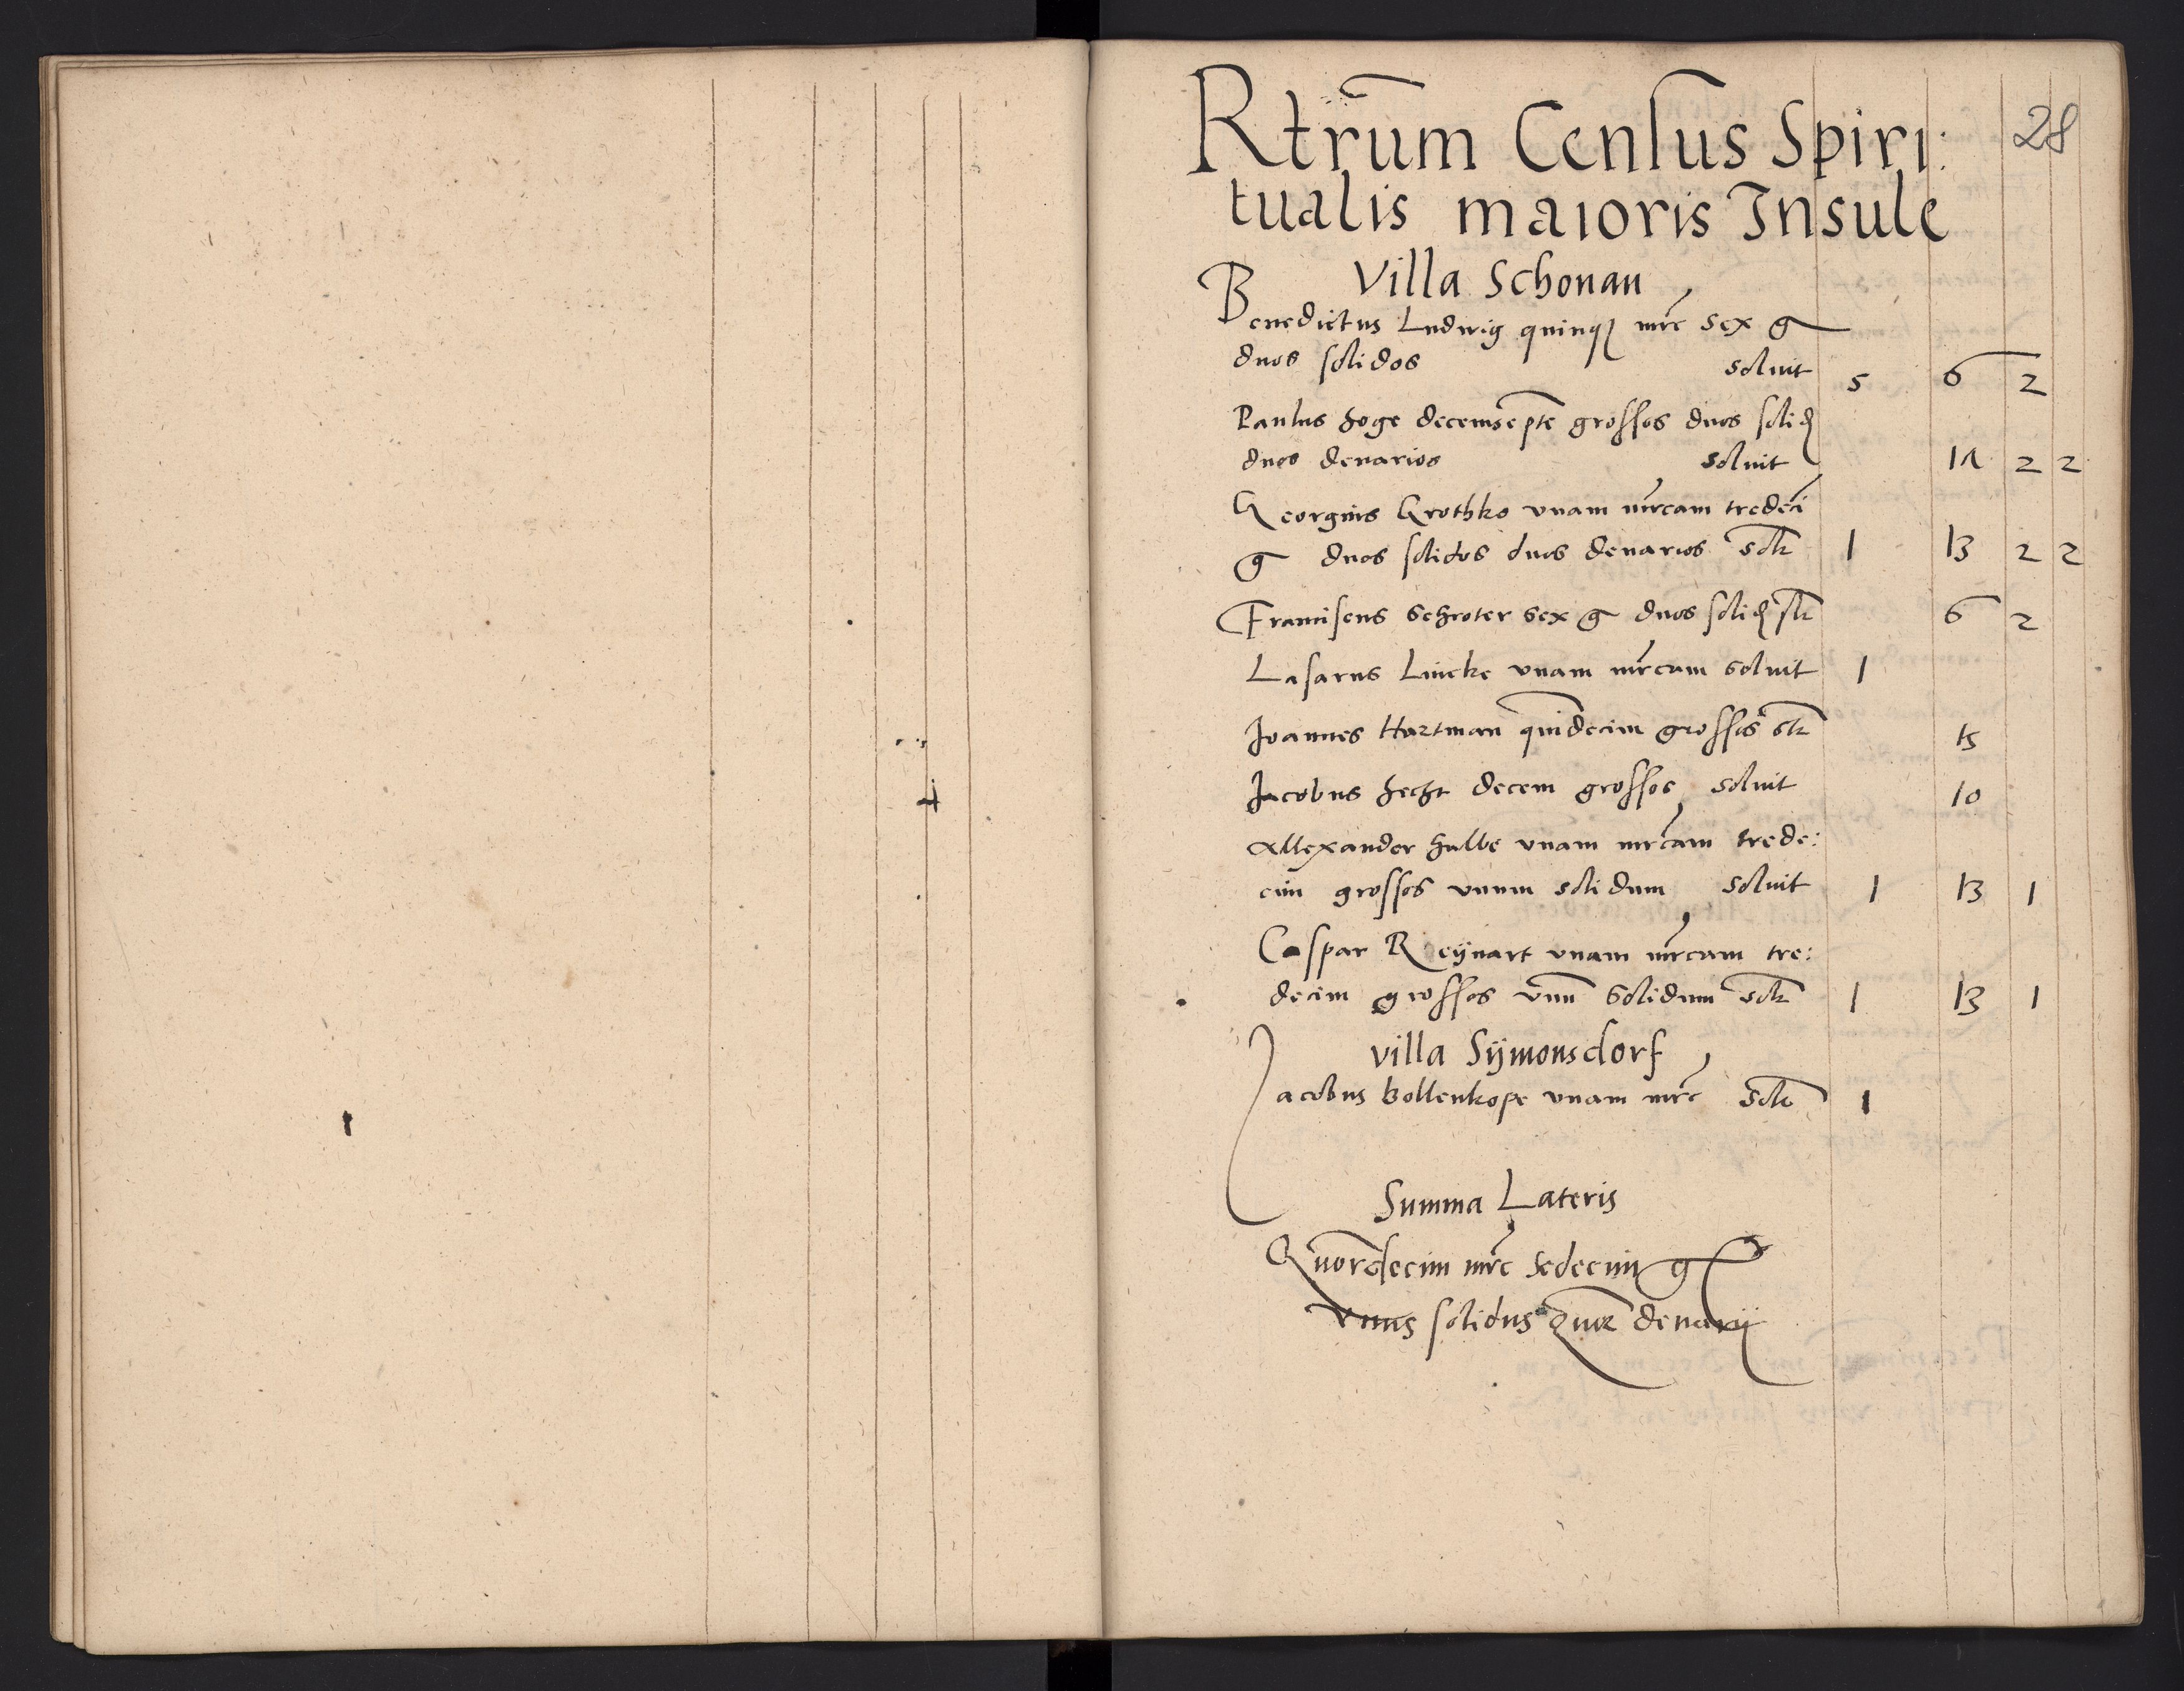 28
Rtrum Census Spiri:
tualis maioris Insule
Villa Schonau
Benedictus Ludwig quinq mrc sex g
duos solidos soluit 5 6 2
Paulus hoge decemsepte grossos duos solid
duos denarios soluit 17 2 2
Georgius Grothko vnam mrcam tredeci
g duos solidos duos denarios solt 1 13 2 2
Franciscus Schroter sex g duos solid slt 6 2
Lasarus Lincke vnam mrcam soluit 1
Joannes Hartman quindecim grossos slt 15
Jacobus hecht decem grossos soluit 10
Allexander halbe vnam mrcam trede:
cim grossos vnum solidum soluit 1 13 1
Caspar Reÿnart vnam mrcam tre:
decim grossos vnu solidum solt 1 13 1
villa Sÿmonsdorf
Jacobus bollenkope vnam mrc solt 1
Summa Lateris
Quordecim mrc sedecim g
vnus solidus quor denarij